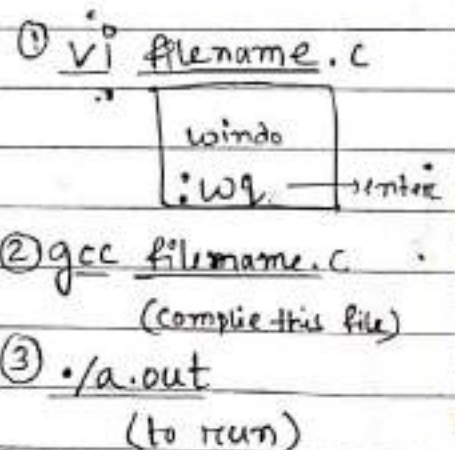 ① vi filename.c
windo
:wq → enter
② gcc filename.c
(complie this file)
③ ./a.out
(to run)